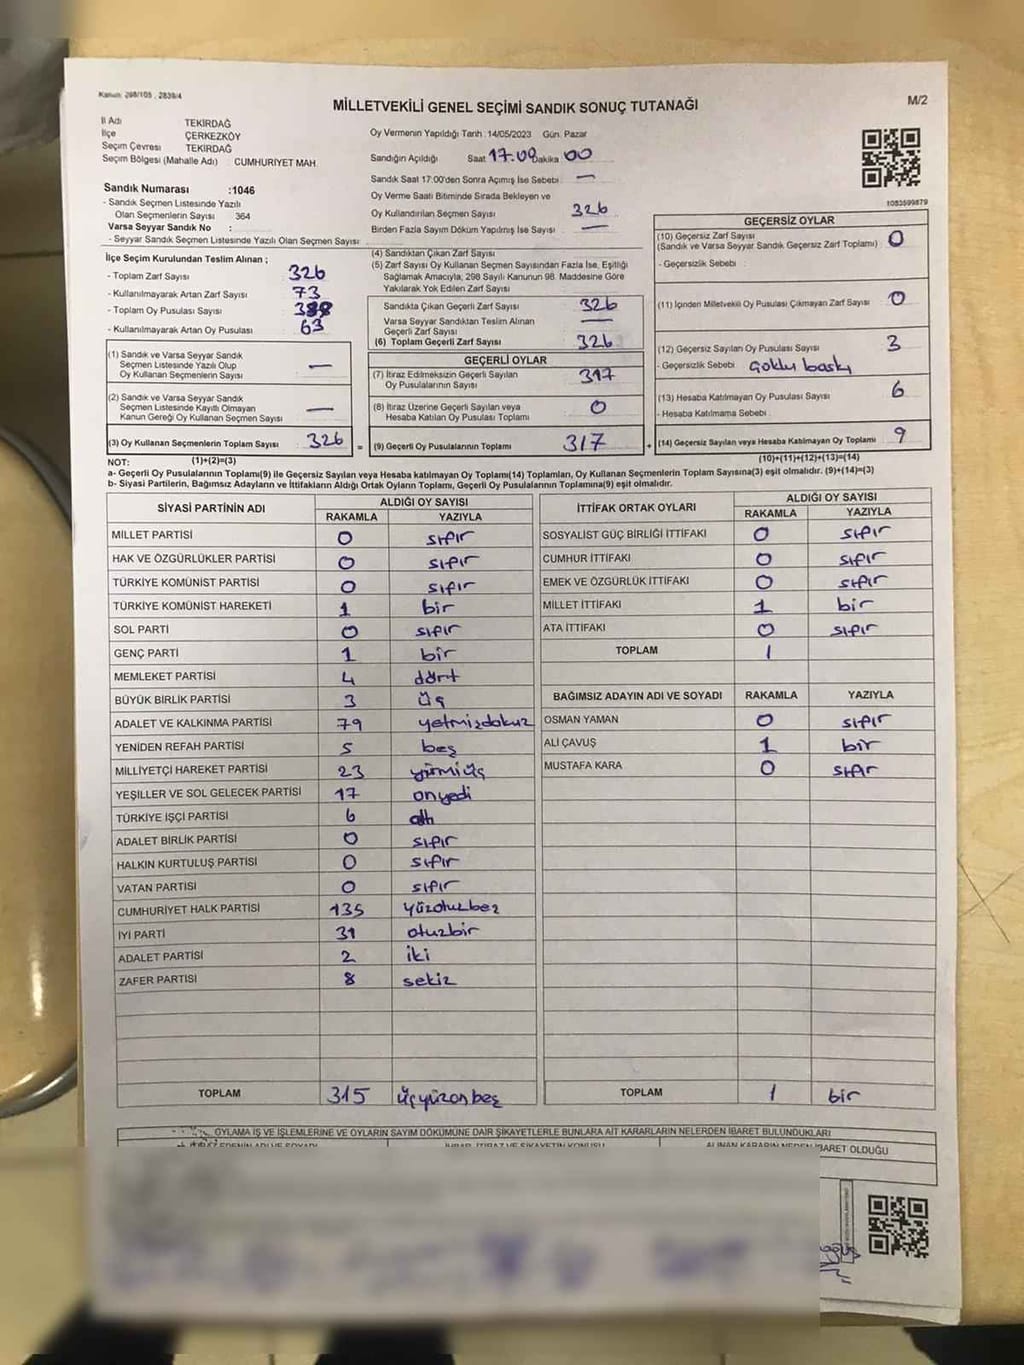 Kanun: 298/105, 2839/4
MİLLETVEKİLİ GENEL SEÇİMİ SANDIK SONUÇ TUTANAĞI
M/2
İl Adı TEKİRDAĞ
İlçe ÇERKEZKÖY
Seçim Çevresi TEKİRDAĞ
Seçim Bölgesi (Mahalle Adı) : CUMHURİYET MAH.
Sandık Numarası :1046
- Sandık Seçmen Listesinde Yazılı
Olan Seçmenlerin Sayısı 364
Varsa Seyyar Sandık No :
- Seyyar Sandık Seçmen Listesinde Yazılı Olan Seçmen Sayısı:
Oy Vermenin Yapıldığı Tarih :14/05/2023 Gün. Pazar
Sandığın Açıldığı Saat 17.00 Dakika 00
Sandık Saat 17:00'den Sonra Açımış İse Sebebi : —
Oy Verme Saati Bitiminde Sırada Bekleyen ve
Oy Kullandırılan Seçmen Sayısı 326
Birden Fazla Sayım Döküm Yapılmış İse Sayısı —
1083599879
İlçe Seçim Kurulundan Teslim Alınan ;
- Toplam Zarf Sayısı 326
- Kullanılmayarak Artan Zarf Sayısı 73
- Toplam Oy Pusulası Sayısı
- Kullanılmayarak Artan Oy Pusulası 63
(1) Sandık ve Varsa Seyyar Sandık
Seçmen Listesinde Yazılı Olup
Oy Kullanan Seçmenlerin Sayısı —
(2) Sandık ve Varsa Seyyar Sandık
Seçmen Listesinde Kayıtlı Olmayan
Kanun Gereği Oy Kullanan Seçmen Sayısı —
(3) Oy Kullanan Seçmenlerin Toplam Sayısı 326 =
(1)+(2)=(3)
(4) Sandıktan Çıkan Zarf Sayısı
(5) Zarf Sayısı Oy Kullanan Seçmen Sayısından Fazla İse, Eşitliği
Sağlamak Amacıyla, 298 Sayılı Kanunun 98. Maddesine Göre
Yakılarak Yok Edilen Zarf Sayısı
Sandıkta Çıkan Geçerli Zarf Sayısı 326
Varsa Seyyar Sandıktan Teslim Alınan
Geçerli Zarf Sayısı —
(6) Toplam Geçerli Zarf Sayısı 326
GEÇERLİ OYLAR
(7) İtiraz Edilmeksizin Geçerli Sayılan
Oy Pusulalarının Sayısı 317
(8) İtiraz Üzerine Geçerli Sayılan veya
Hesaba Katılan Oy Pusulası Toplamı 0
(9) Geçerli Oy Pusulalarının Toplamı 317 +
GEÇERSİZ OYLAR
(10) Geçersiz Zarf Sayısı
(Sandık ve Varsa Seyyar Sandık Geçersiz Zarf Toplamı) 0
- Geçersizlik Sebebi :
(11) İçinden Milletvekili Oy Pusulası Çıkmayan Zarf Sayısı 0
(12) Geçersiz Sayılan Oy Pusulası Sayısı 3
- Geçersizlik Sebebi : Çoklu baskı
(13) Hesaba Katılmayan Oy Pusulası Sayısı 6
- Hesaba Katılmama Sebebi :
(14) Geçersiz Sayılan veya Hesaba Katılmayan Oy Toplamı 9
(10)+(11)+(12)+(13)=(14)
NOT:
a- Geçerli Oy Pusulalarının Toplamı(9) ile Geçersiz Sayılan veya Hesaba katılmayan Oy Toplamı(14) Toplamları, Oy Kullanan Seçmenlerin Toplam Sayısına(3) eşit olmalıdır. (9)+(14)=(3)
b- Siyasi Partilerin, Bağımsız Adayların ve İttifakların Aldığı Ortak Oyların Toplamı, Geçerli Oy Pusulalarının Toplamına(9) eşit olmalıdır.
SİYASİ PARTİNİN ADI ALDIĞI OY SAYISI
RAKAMLA YAZIYLA
MİLLET PARTİSİ 0 sıfır
HAK VE ÖZGÜRLÜKLER PARTİSİ 0 sıfır
TÜRKİYE KOMÜNİST PARTİSİ 0 sıfır
TÜRKİYE KOMÜNİST HAREKETİ 1 bir
SOL PARTİ 0 sıfır
GENÇ PARTİ 1 bir
MEMLEKET PARTİSİ 4 dört
BÜYÜK BİRLİK PARTİSİ 3 üç
ADALET VE KALKINMA PARTİSİ 79 yetmişdokuz
YENİDEN REFAH PARTİSİ 5 beş
MİLLİYETÇİ HAREKET PARTİSİ 23 yirmiüç
YEŞİLLER VE SOL GELECEK PARTİSİ 17 onyedi
TÜRKİYE İŞÇİ PARTİSİ 6 altı
ADALET BİRLİK PARTİSİ 0 sıfır
HALKIN KURTULUŞ PARTİSİ 0 sıfır
VATAN PARTİSİ 0 sıfır
CUMHURİYET HALK PARTİSİ 135 yüzotuzbeş
İYİ PARTİ 31 otuzbir
ADALET PARTİSİ 2 iki
ZAFER PARTİSİ 8 sekiz
TOPLAM 315 üçyüzonbeş
İTTİFAK ORTAK OYLARI ALDIĞI OY SAYISI
RAKAMLA YAZIYLA
SOSYALİST GÜÇ BİRLİĞİ İTTİFAKI 0 sıfır
CUMHUR İTTİFAKI 0 sıfır
EMEK VE ÖZGÜRLÜK İTTİFAKI 0 sıfır
MİLLET İTTİFAKI 1 bir
ATA İTTİFAKI 0 sıfır
TOPLAM 1
BAĞIMSIZ ADAYIN ADI VE SOYADI RAKAMLA YAZIYLA
OSMAN YAMAN 0 sıfır
ALİ ÇAVUŞ 1 bir
MUSTAFA KARA 0 sıfır
TOPLAM 1 bir
OYLAMA İŞ VE İŞLEMLERİNE VE OYLARIN SAYIM DÖKÜMÜNE DAİR ŞİKAYETLERLE BUNLARA AİT KARARLARIN NELERDEN İBARET BULUNDUKLARI
ALINAN KARARIN NEDEN İBARET OLDUĞU